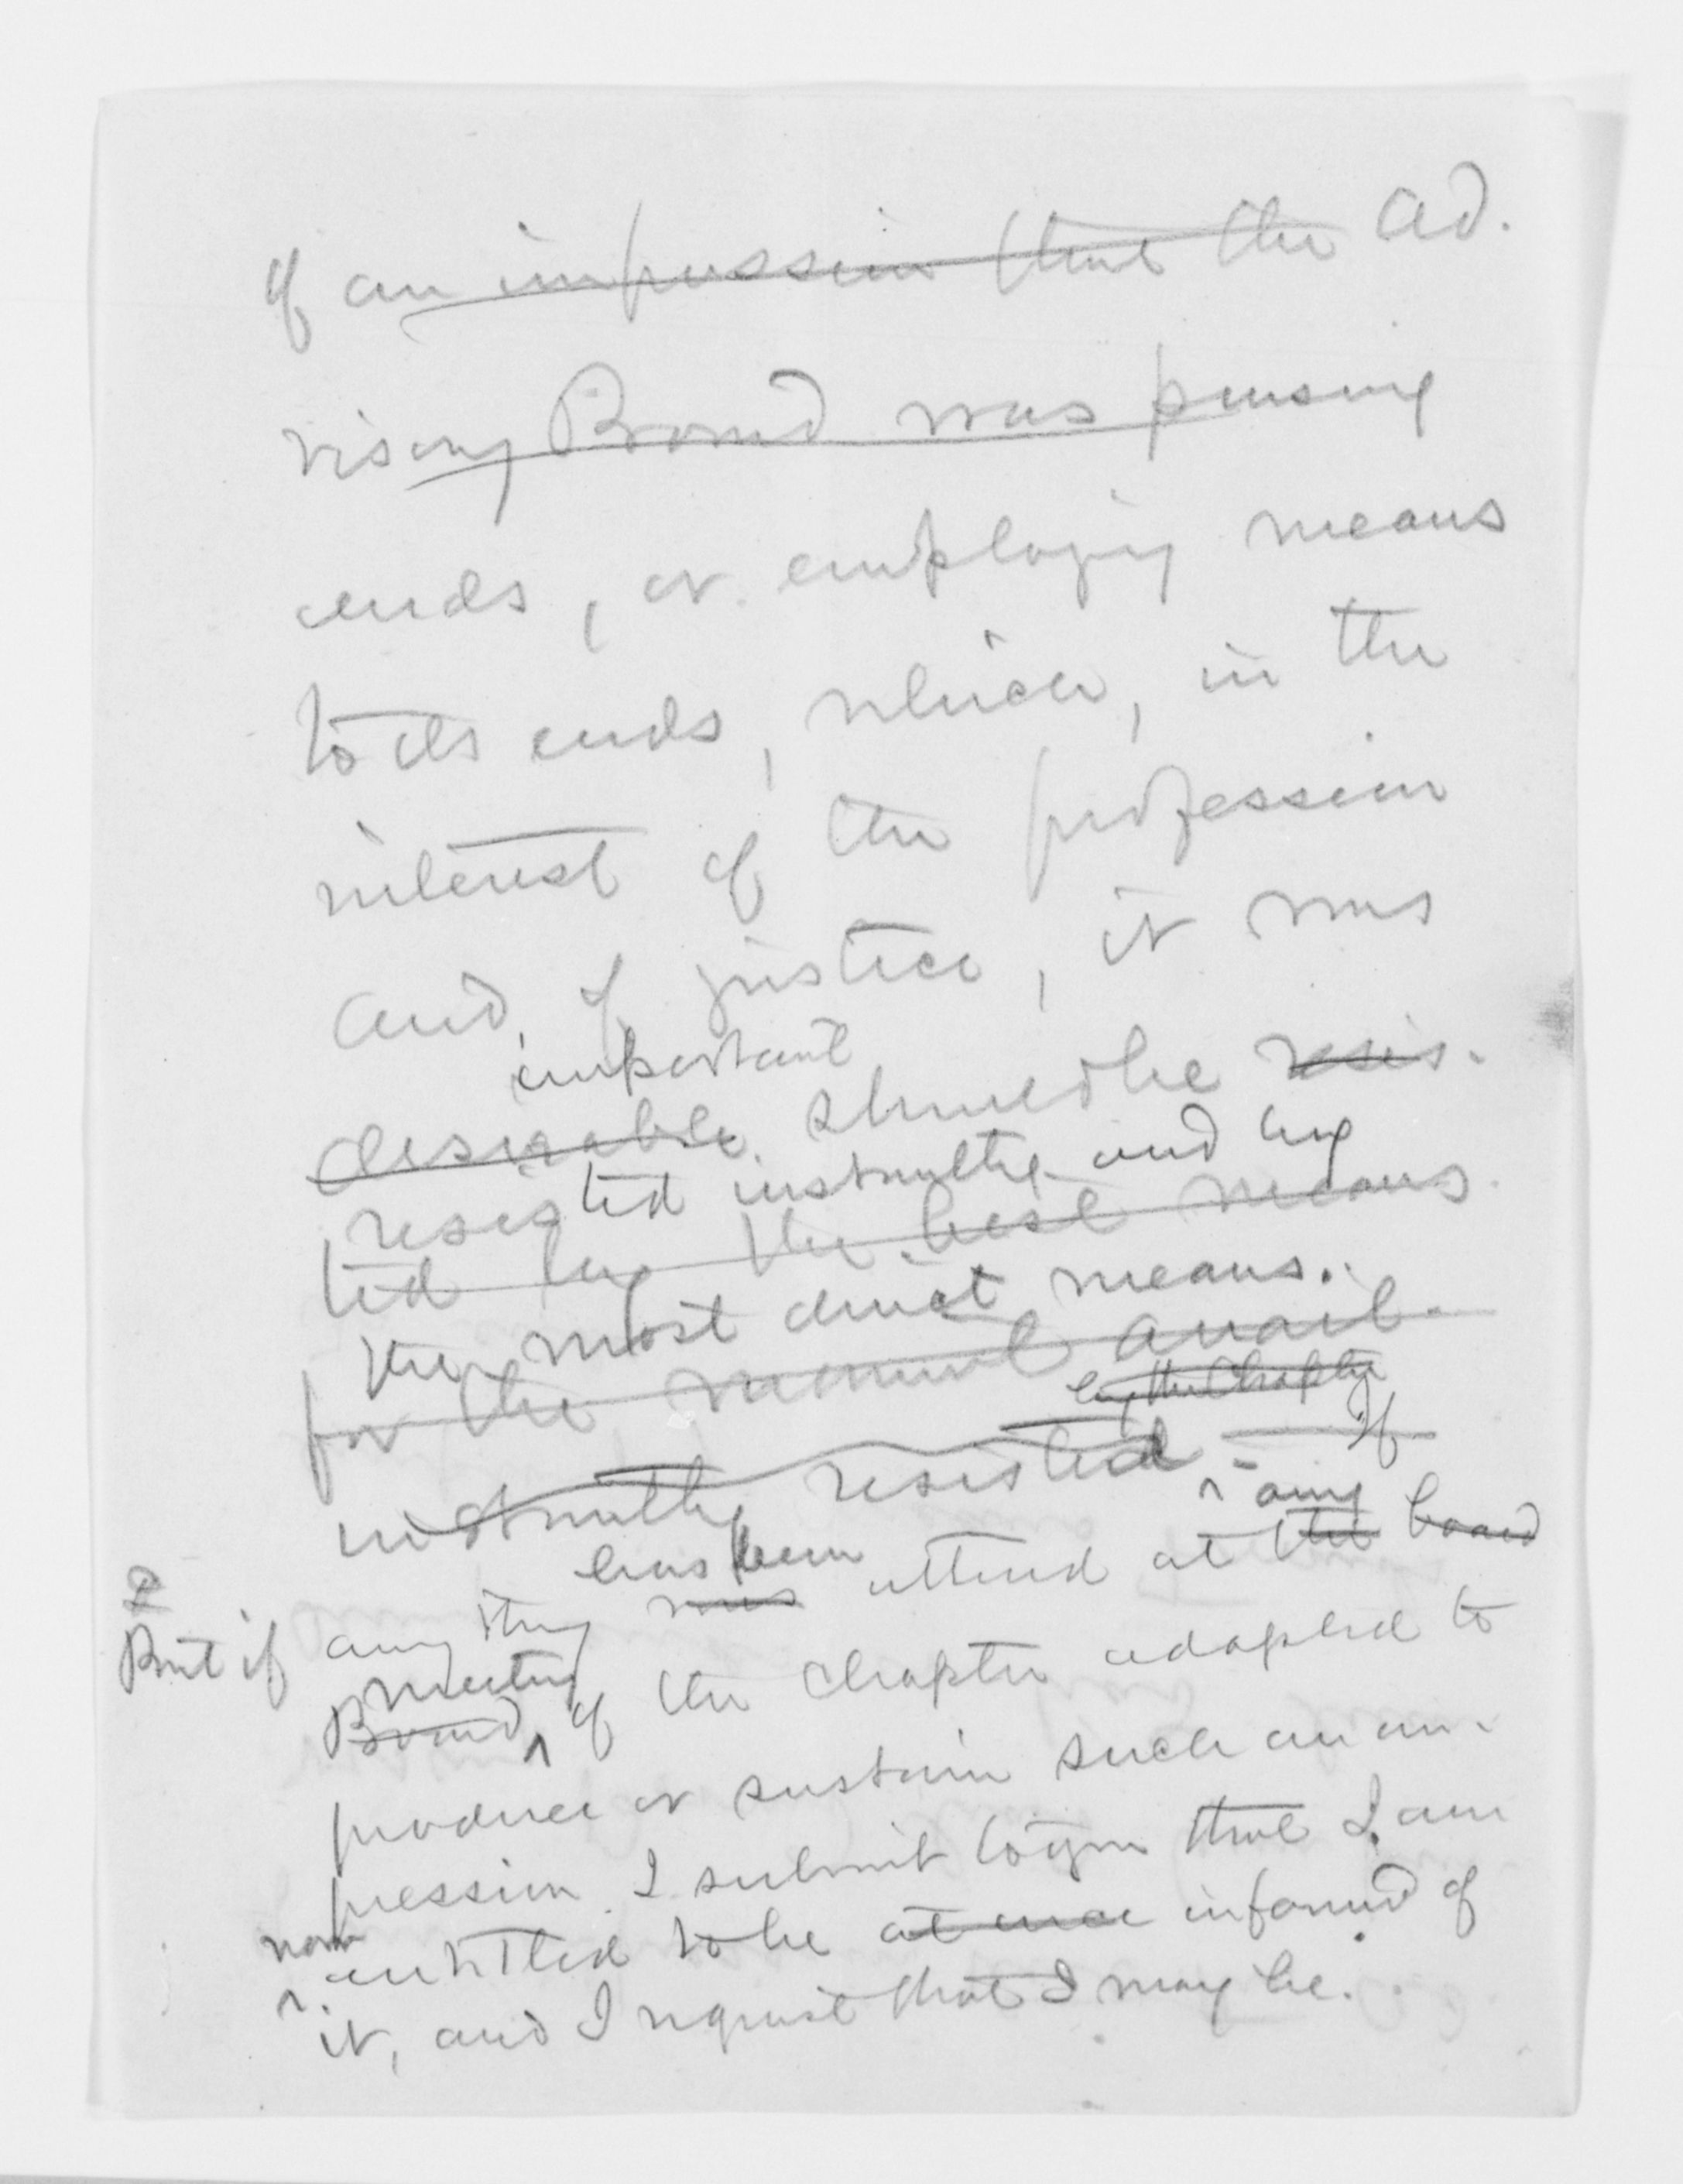 of an impression that the Ad-
visory Board was pursuing
ends, or employing means
to its ends, which, in the
interest of the profession
and of justice, it was
important
desirable should be resis-
resisted instantly and by
ted by the best means
the most direct means.
for the moment avail-
by the Chapter
instantly resisted. If
any
has been
But if anything was uttered at the board
Meeting
Board of the Chapter adapted to
produce or sustain such an im-
pression I submit to you that I am
now
entitled to be at once informed of
it, and I request that I may be.